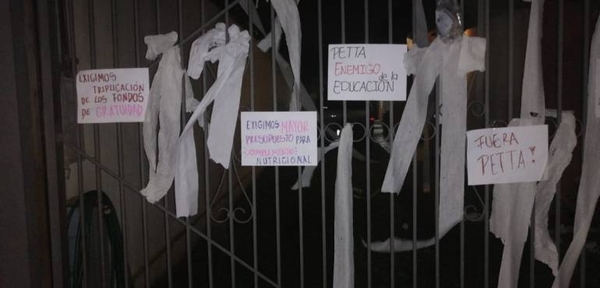 EXIGIMOS
TRIPLICACIÓN
DE LOS FONDOS
DE GRATUIDAD
EXIGIMOS MAYOR
PRESUPUESTO PARA
COMPLEMENTO
NUTRICIONAL
PETTA
ENEMIGO de la
EDUCACIÓN
FUERA
PETTA!